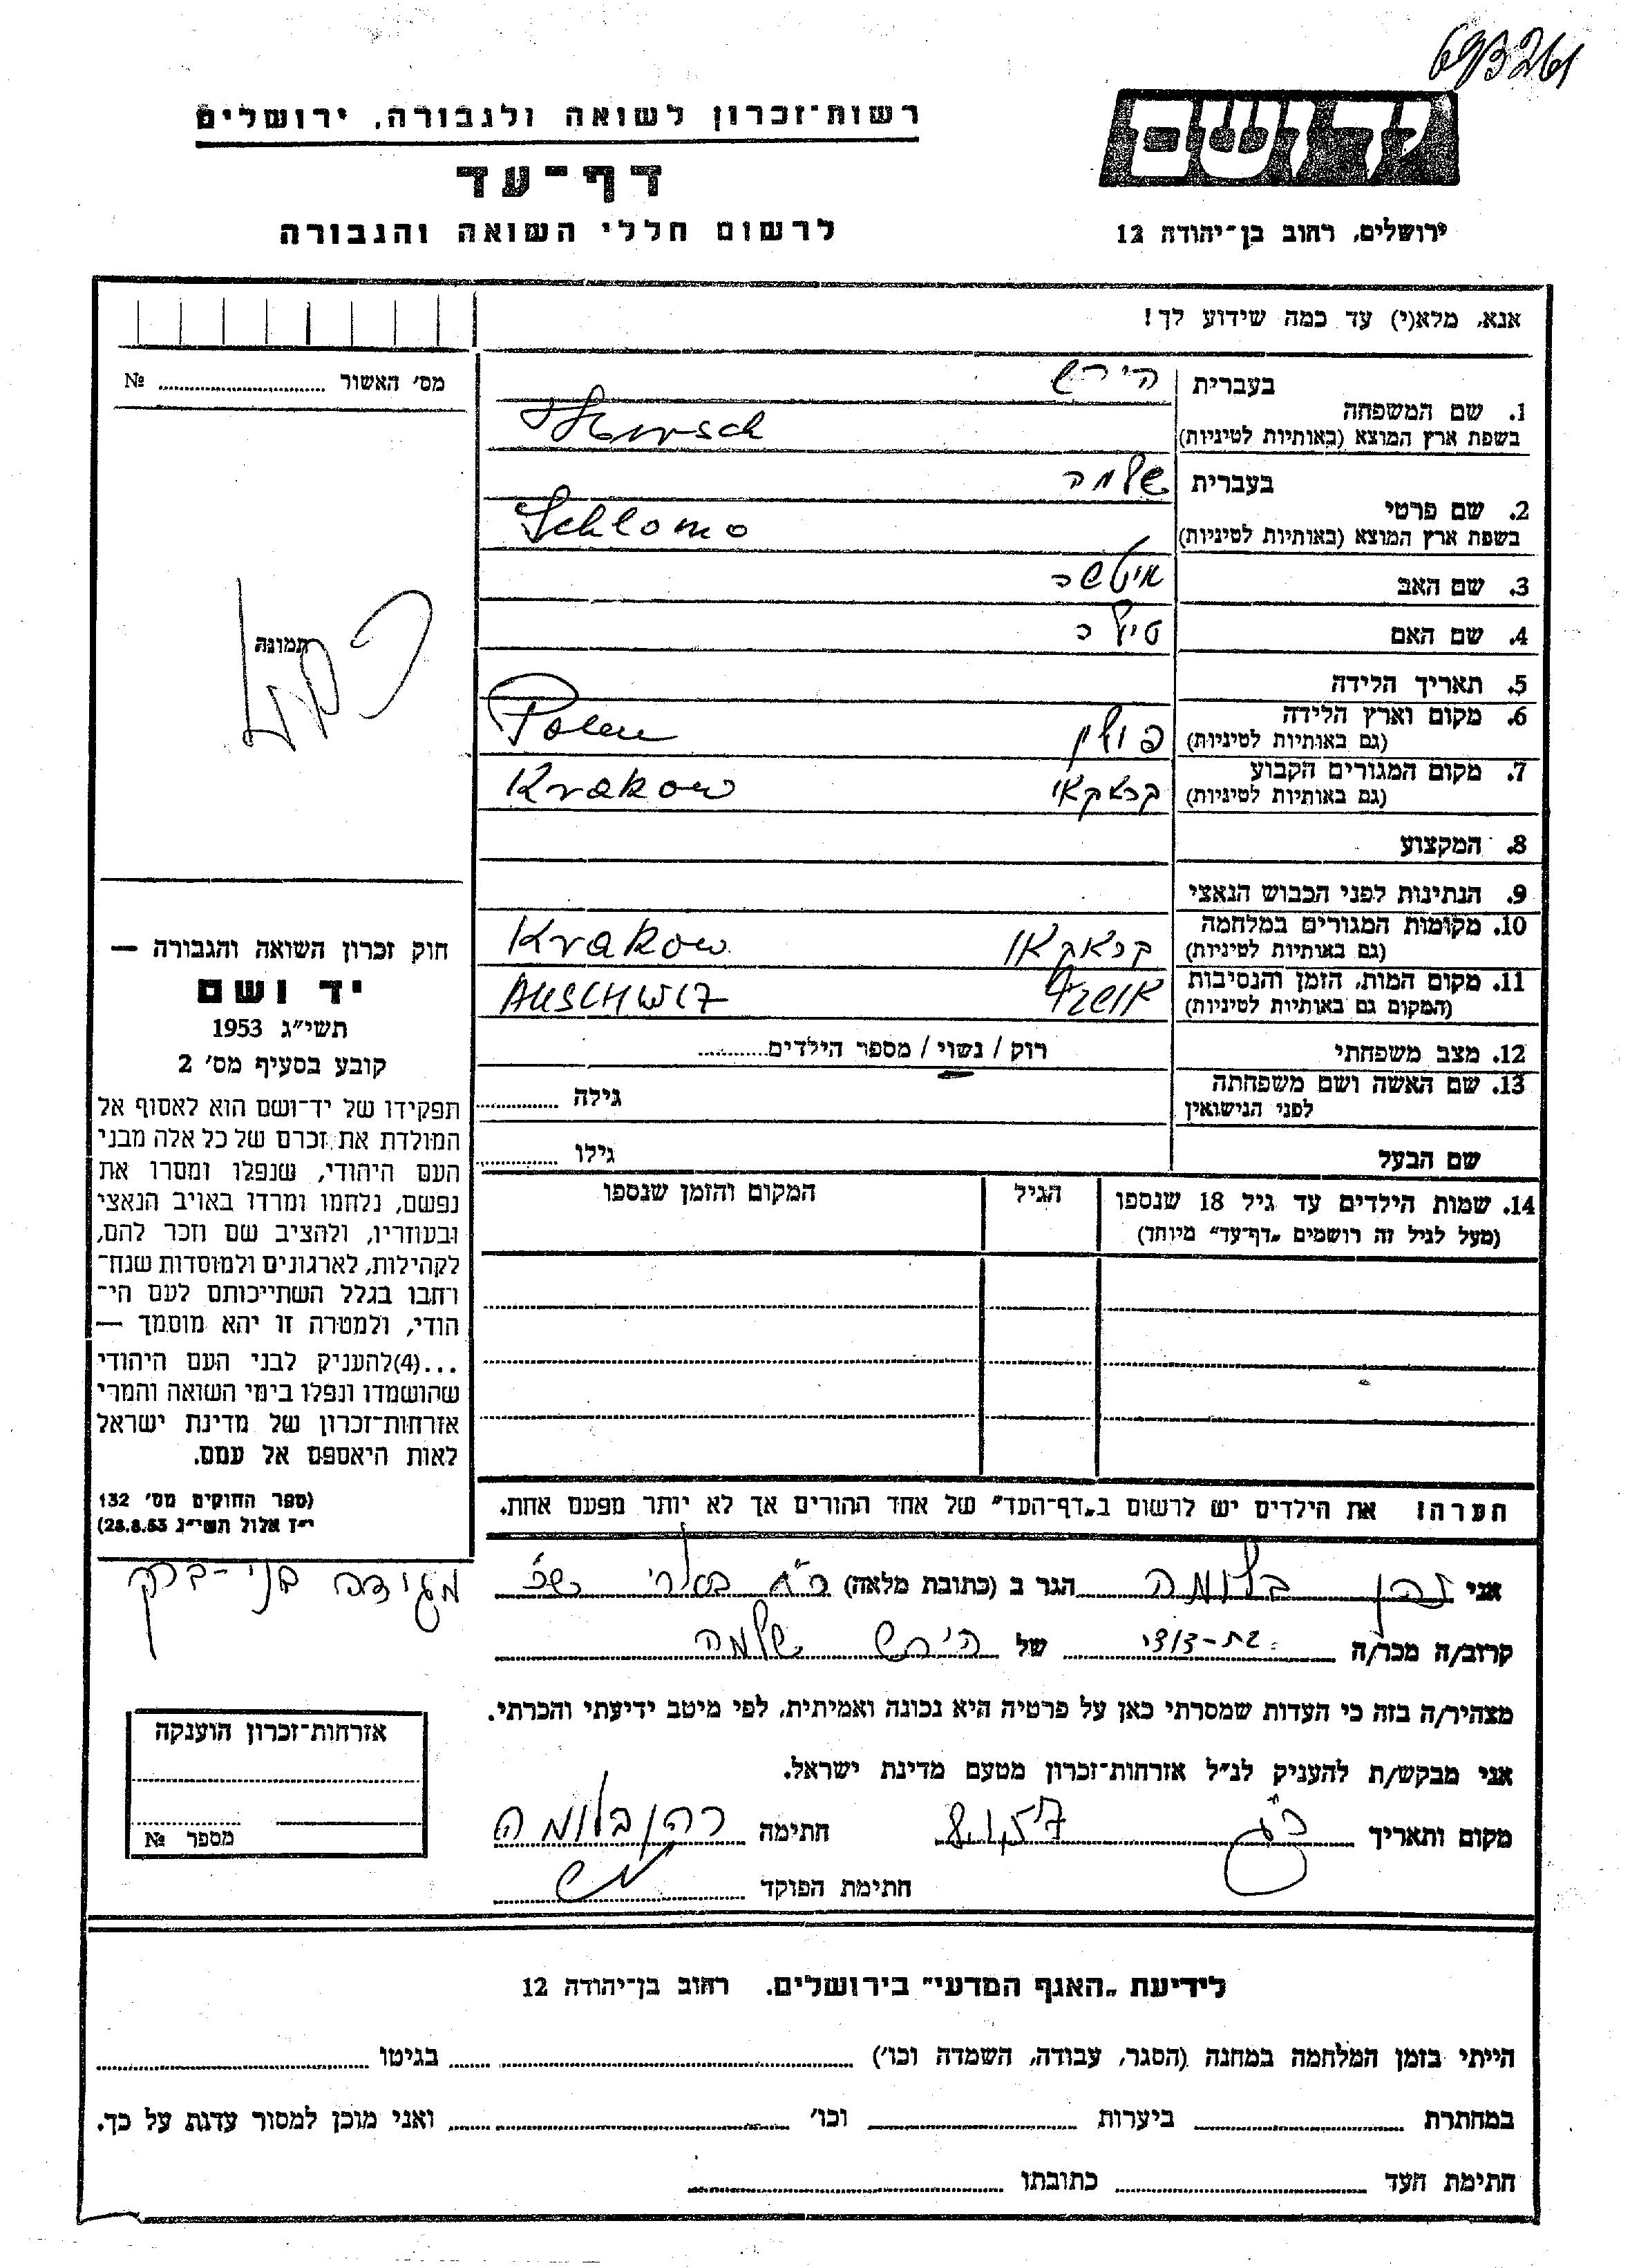 693261
רשות־זכרון לשואה ולגבורה, ירושלים
יד ושם
דף־עד
לרשום חללי השואה והגבורה
ירושלים, רחוב בן־יהודה 12
אנא, מלא(י) עד כמה שידוע לך!
מס׳ האשור № 
1. שם המשפחה בעברית הירש
בשפת ארץ המוצא (באותיות לטיניות) Hirsch
2. שם פרטי בעברית שלמה
בשפת ארץ המוצא (באותיות לטיניות) Schlomo
3. שם האב איטשה
4. שם האם טילה
תמונה
5. תאריך הלידה
6. מקום וארץ הלידה
(גם באותיות לטיניות) פולין Polen
7. מקום המגורים הקבוע
(גם באותיות לטיניות) קראקאו Krakow
8. המקצוע
9. הנתינות לפני הכבוש הנאצי
10. מקומות המגורים במלחמה
(גם באותיות לטיניות) קראקאו Krakow
11. מקום המות, הזמן והנסיבות
(המקום גם באותיות לטיניות) AUSCHWIZ
12. מצב משפחתי רוק / נשוי / מספר הילדים
13. שם האשה ושם משפחתה
לפני הנישואין גילה
שם הבעל גילו
14. שמות הילדים עד גיל 18 שנספו הגיל המקום והזמן שנספו
(מעל לגיל זה רושמים „דף־עד" מיוחד)
חוק זכרון השואה והגבורה —
יד ושם
תשי״ג 1953
קובע בסעיף מס׳ 2
תפקידו של יד־ושם הוא לאסוף אל
המולדת את זכרם של כל אלה מבני
העם היהודי, שנפלו ומסרו את
נפשם, נלחמו ומרדו באויב הנאצי
ובעוזריו, ולהציב שם וזכר להם,
לקהילות, לארגונים ולמוסדות שנח־
רחבו בגלל השתייכותם לעם הי־
הודי, ולמטרה זו יהא מוסמך —
...(4)להעניק לבני העם היהודי
שהושמדו ונפלו בימי השואה והמרי
אזרחות־זכרון של מדינת ישראל
לאות היאספם אל עמם.
(ספר החוקים מס׳ 132
י״ז אלול תשי״ג 28.8.53)
הערה! את הילדים יש לרשום ב„דף־העד" של אחד ההורים אך לא יותר מפעם אחת.
אני בלומה הגר ב (כתובת מלאה) בני-ברק
קרוב/ה מכר/ה בת-דודי של הירש שלמה
מצהיר/ה בזה כי העדות שמסרתי כאן על פרטיה היא נכונה ואמיתית, לפי מיטב ידיעתי והכרתי.
אני מבקש/ת להעניק לנ״ל אזרחות־זכרון מטעם מדינת ישראל.
מקום ותאריך 8.1.57 חתימה בלומה
חתימת הפוקד
אזרחות־זכרון הוענקה
מספר №
לידיעת „האגף המדעי" בירושלים. רחוב בן־יהודה 12
הייתי בזמן המלחמה במחנה (הסגר, עבודה, השמדה וכו׳) בגיטו
במחתרת ביערות וכו׳ ואני מוכן למסור עדות על כך.
חתימת העד כתובתו